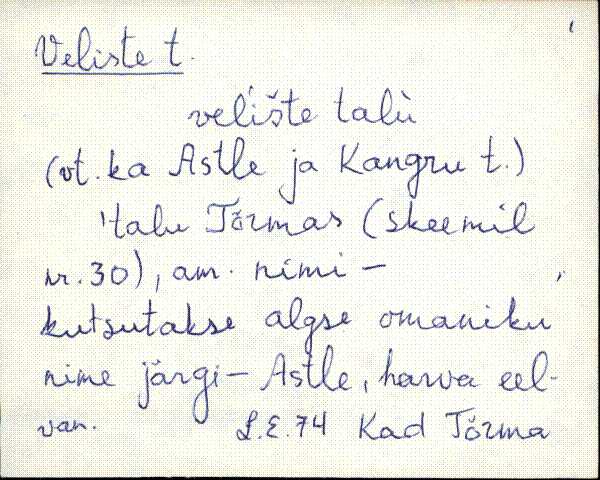 Veliste t.
velište talù
(vt. ka Astle ja Kangru t.)
'talu Tõrmas (skeemil
nr. 30), am. nimi –
kutsutakse algse omaniku
nime järgi – Astle, harva eel-
van. L.E. 74 Kad Tõrma